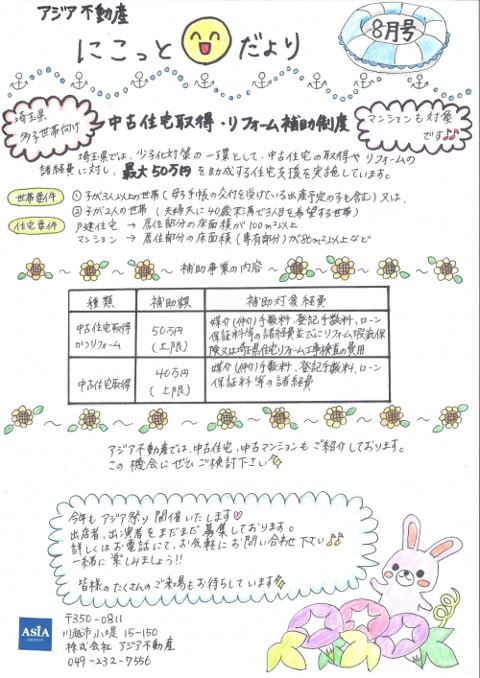 アジア不動産
にこっと だより
8月号
埼玉県
多子世帯向け
中古住宅取得・リフォーム補助制度
マンションも対象
です♪♪
埼玉県では、少子化対策の一環として、中古住宅の取得やリフォームの
諸経費に対し、最大50万円を助成する住宅支援を実施しています。
世帯要件 ①子が3人以上の世帯(母子手帳の交付を受けている出産予定の子も含む)又は、
②子が2人の世帯(夫婦共に40歳未満で3人目を希望する世帯)
住宅要件 戸建住宅 → 居住部分の床面積が100㎡以上
マンション → 居住部分の床面積(専有部分)が80㎡以上など
~ 補助事業の内容 ~
種類 補助額 補助対象経費
中古住宅取得
かつリフォーム
50万円
(上限)
媒介(仲介)手数料、登記手数料、ローン
保証料等の諸経費並びにリフォーム瑕疵保
険又は埼玉県住宅リフォーム工事検査の費用
中古住宅取得
40万円
(上限)
媒介(仲介)手数料、登記手数料、ローン
保証料等の諸経費
アジア不動産では、中古住宅、中古マンションもご紹介しております。
この機会にぜひご検討下さい
今年もアジア祭り開催いたします♡
出店者、出演者をまだまだ募集しております。
詳しくはお電話にて、お気軽にお問い合わせ下さい♪♪
一緒に楽しみましょう!!
皆様のたくさんのご来場もお待ちしています
ASIA
〒350-0811
川越市小堤 15-150
株式会社 アジア不動産
049-232-7556